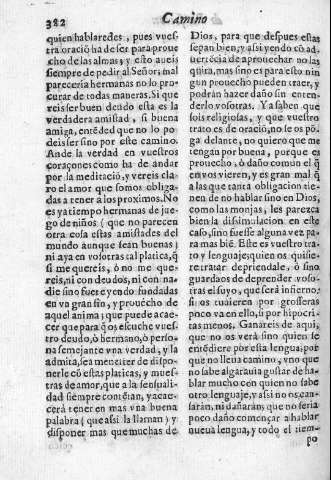 382
Camino
quien hablaredes, pues vues-
tra oració ha de ser para proue
cho de las almas; y esto aueis
siempre de pedir al Señor, mal
pareceria hermanas no lo pro-
curar de todas maneras. Si que
reis ser buen deudo esta es la
verdadera amistad, si buena
amiga, entéded que no lo po
deis ser sino por este camino.
Ande la verdad en vuestros
coraçones como ha de andar
por la meditació, y vereis cla-
ro el amor que somos obliga-
das a tener a los proximos. No
es ya tiempo hermanas de jue-
go de niños (que no parecen
otra cosa estas amistades del
mundo aunque sean buenas)
ni aya en vosotras tal platica, q̃
si me quereis, ò no me que-
reis, ni con deudos, ni con na-
die sino fuere yendo fundadas
en vn gran fin, y prouecho de
aquel anima; que puede acae-
cer para que os escuche vues-
tro deudo, ò hermano, ò perso-
na semejante vna verdad, y la
admita, sea menester de dispo-
nerle cō estas platicas, y mues-
tras de amor, que a la sensuali-
dad siempre contétan, y acae-
cerá tener en mas vna buena
palabra (que assi la llaman) y
disponer mas que muchas de
Dios, para que despues estas
sepan bien, y assi yendo cō ad-
uertécia de aprouechar no las
quita, mas sino es para esto nin
gun prouecho pueden traer, y
podràn hazer daño sin enten-
derlo vosotras. Ya saben que
sois religiosas, y que vuestro
trato es de oració, no se os pō-
ga delante, no quiero que me
tengan por buena, porque es
prouecho, ò daño comun el q̃
en vos vieren, y es gran mal q̃
a las que tanta obligacion tie-
nen de no hablar sino en Dios,
como las monjas, les parezca
bien la dissimulacion en este
caso, sino fuesse alguna vez pa-
ra mas bié. Este es vuestro tra-
to y lenguaje; quien os quisie-
re tratar depriendale, ò sino
guardaos de deprender voso-
tras el suyo, que será infierno;
si os tuuieren por grosseras
poco va en ello, si por hipocri-
tas menos. Ganareis de aqui,
que no os verá sino quien se
entédiere por esta lengua; por
que no lleua camino, vno que
no sabe algarauia gustar de ha-
blar mucho con quien no sabe
otro lenguaje, y assi no os can-
sarán, ni dañarán, que no seria
poco daño començar a hablar
nueua lengua, y todo el tiem-
po